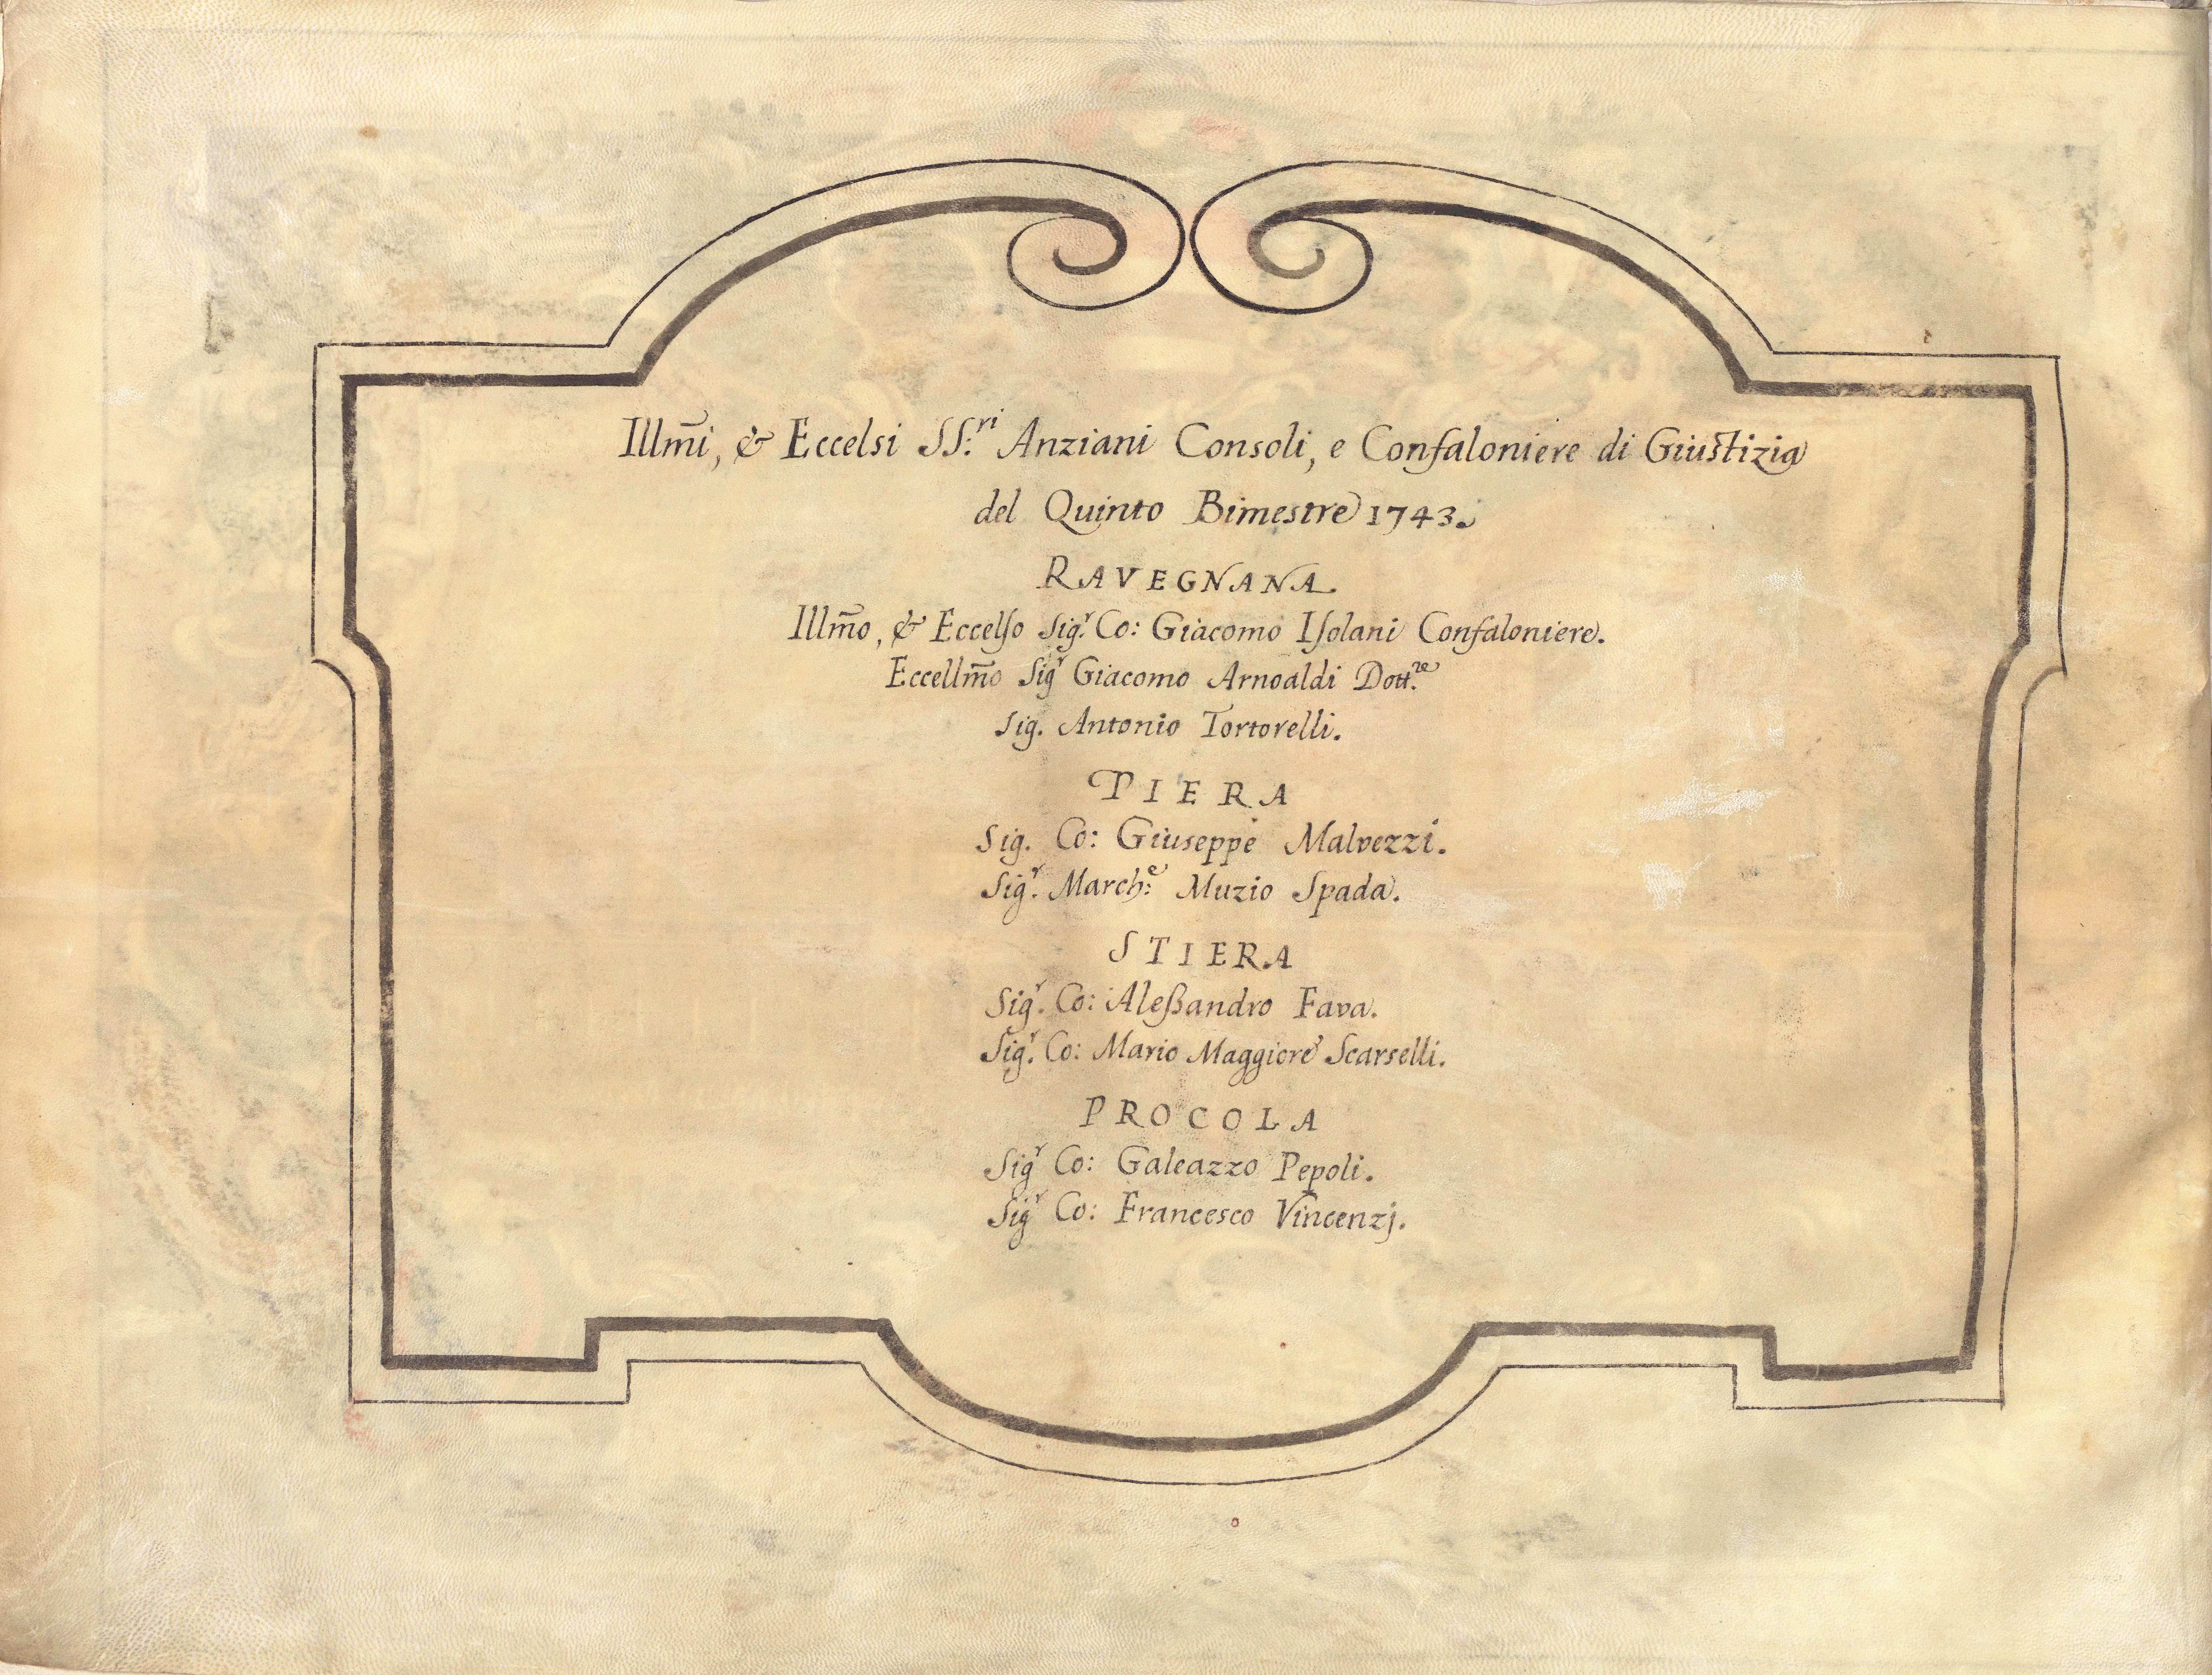 Illm̃i, & Eccelsi SS:ri Anziani Consoli, e Confaloniere di Giustizia
del Quinto Bimestre 1743.
RAVEGNANA
Illm̃o, & Eccelſo Sigr. Co: Giacomo Iſolani Confaloniere.
Eccellm̃o Sigr Giacomo Arnoaldi Dott.re
Sig. Antonio Tortorelli.
PIERA
Sig. Co: Giuseppe Malvezzi.
Sigr. March:e Muzio Spada.
STIERA
Sigr. Co: Aleßandro Fava.
Sigr. Co: Mario Maggiore Scarselli.
PROCOLA
Sigr Co: Galeazzo Pepoli.
Sigr Co: Francesco Vincenzj.